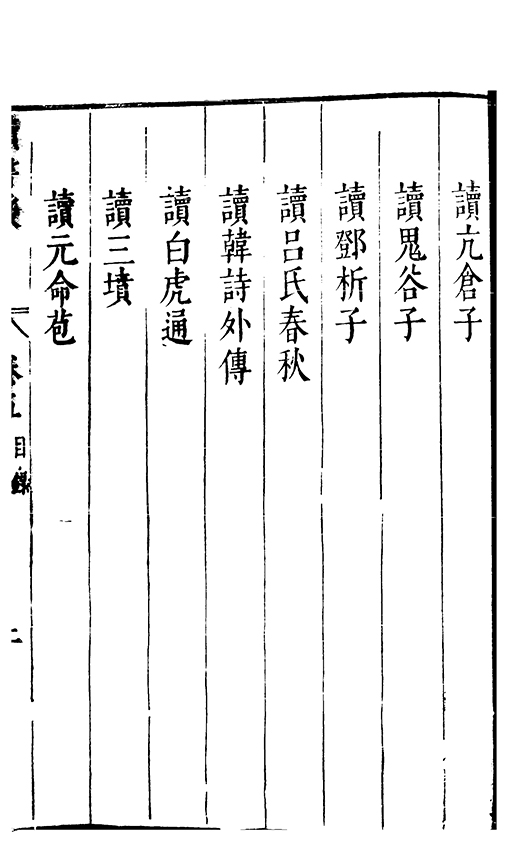 讀亢倉子
讀鬼谷子
讀鄧析子
讀呂氏春秋
讀韓詩外傳
讀白虎通
讀三墳
讀元命苞
讀書後
卷五目錄
二